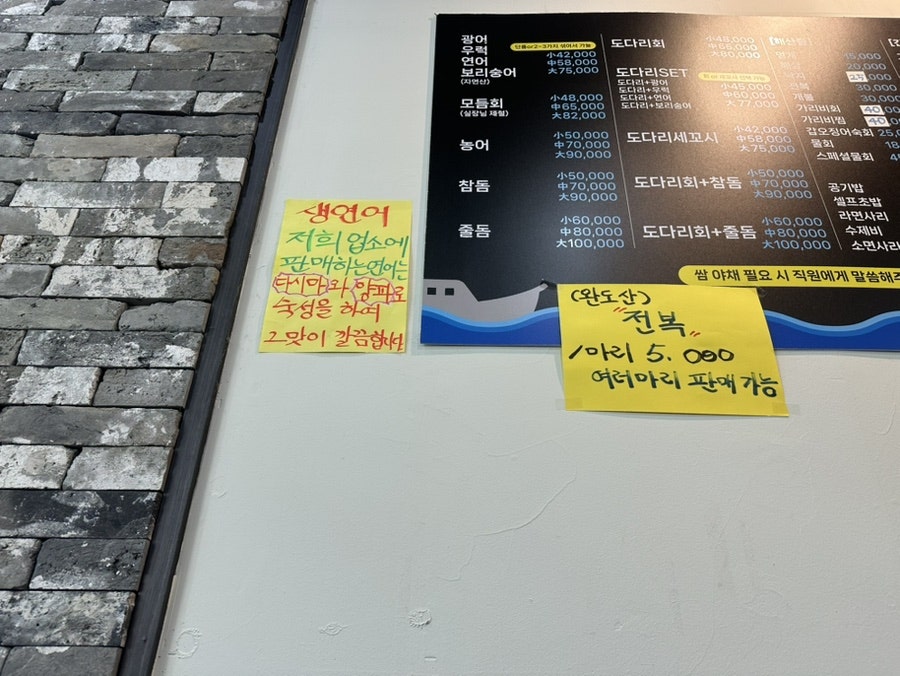 생연어
저희 업소에
판매하는 연어는
다시마와 양파로
숙성을 하여
그맛이 깔끔합니다
광어
우럭
연어
보리숭어
(자연산)
단품or2~3가지 섞어서 가능
小42,000
中58,000
大75,000
모듬회
(실장님 재량)
小48,000
中65,000
大82,000
농어
小50,000
中70,000
大90,000
참돔
小50,000
中70,000
大90,000
줄돔
小60,000
中80,000
大100,000
도다리회
小48,000
中65,000
大80,000
도다리SET
도다리+광어
도다리+우럭
도다리+연어
도다리+보리숭어
小45,000
中60,000
大77,000
도다리세꼬시
小42,000
中58,000
大75,000
도다리회+참돔
小50,000
中70,000
大90,000
도다리회+줄돔
小60,000
中80,000
大100,000
15,000
20,000
30,000
개불 30,000
가리비회 40
가리비찜 40
갑오징어숙회 25
물회
스페셜물회
공기밥
셀프초밥
라면사리
수제비
소면사리
쌈 야채 필요 시 직원에게 말씀해주
(완도산)
"전복"
1마리 5.000
여러마리 판매가능